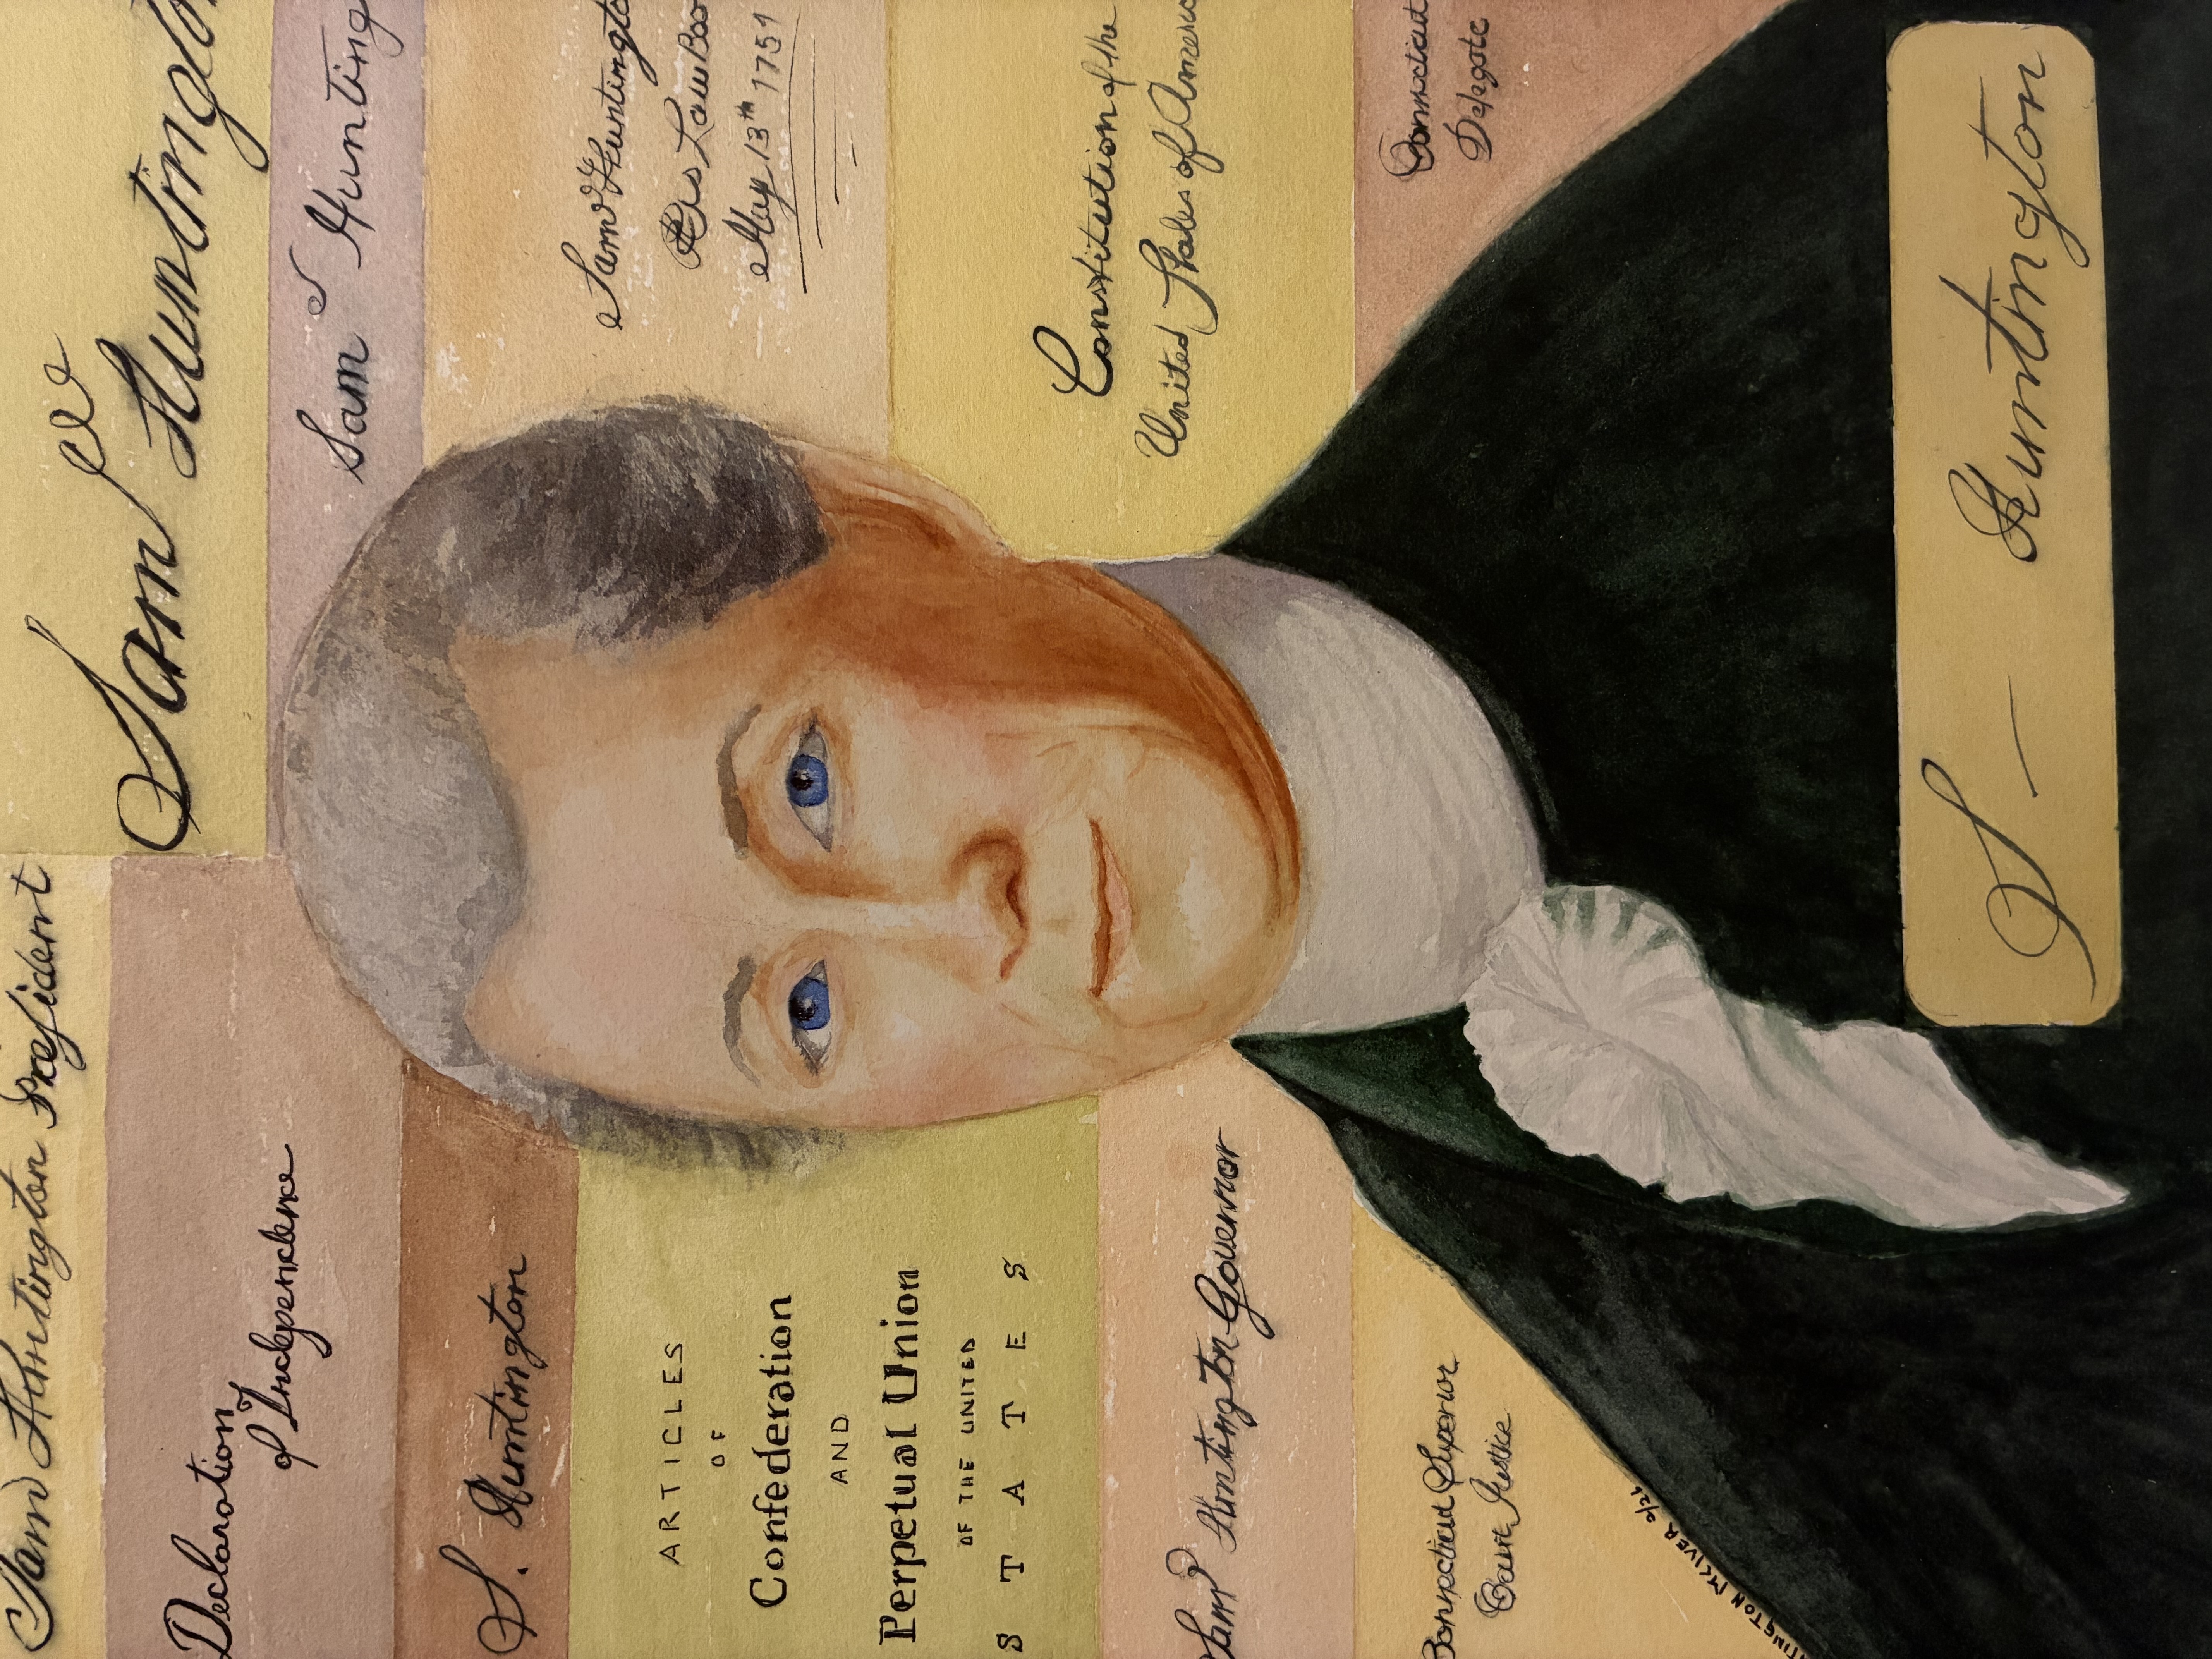 Sam^l Huntington Preſident
Declaration
of Independence
S. Huntington
ARTICLES
OF
Confederation
AND
Perpetual Union
OF THE UNITED
STATES
Sam^l Huntington Governor
Connecticut Superior
Court Justice
NTINGTON MCKIVER 2/26
Sam^l Huntingto
Sam^l Hunting
Sam^l Huntingto
His Law Boo
May 13th 1751
Constitution of the
United States of America
Connecticut
Delegate
S — Huntington